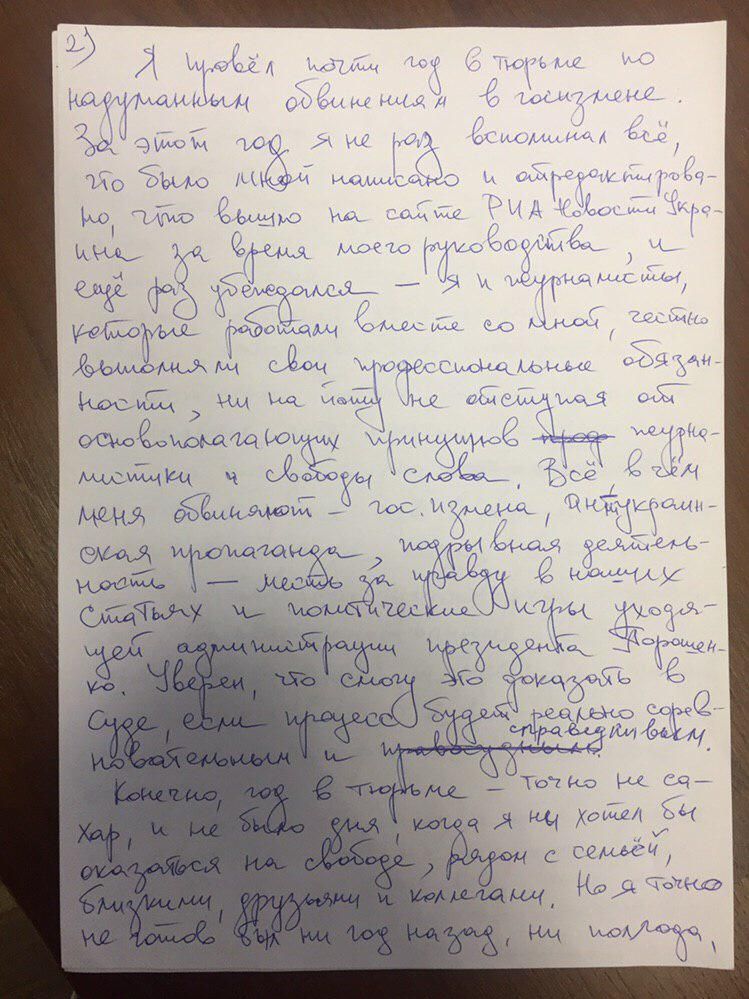 2)
Я провёл почти год в тюрьме по
надуманным обвинениям в госизмене.
За этот год я не раз вспоминал всё,
что было мной написано и отредактирова-
но, что вышло на сайте РИА Новости Укра-
ина за время моего руководства, и
ещё раз убеждался — я и журналисты,
которые работали вместе со мной, честно
выполняли свои профессиональные обязан-
ности, ни на йоту не отступая от
основополагающих принципов прод журна-
листики и свободы слова. Всё, в чём
меня обвиняют — гос. измена, антиукраин-
ская пропаганда, подрывная деятель-
ность — месть за правду в наших
статьях и политические игры уходя-
щей администрации президента Порошен-
ко. Уверен, что смогу это доказать в
суде, если процесс будет реально сорев-
новательным и правосудным. справедливым.
Конечно, год в тюрьме — точно не са-
хар, и не было дня, когда я ны хотел бы
оказаться на свободе, рядом с семьёй,
близкими, друзьями и коллегами. Но я точно
не готов был ни год назад, ни полгода,